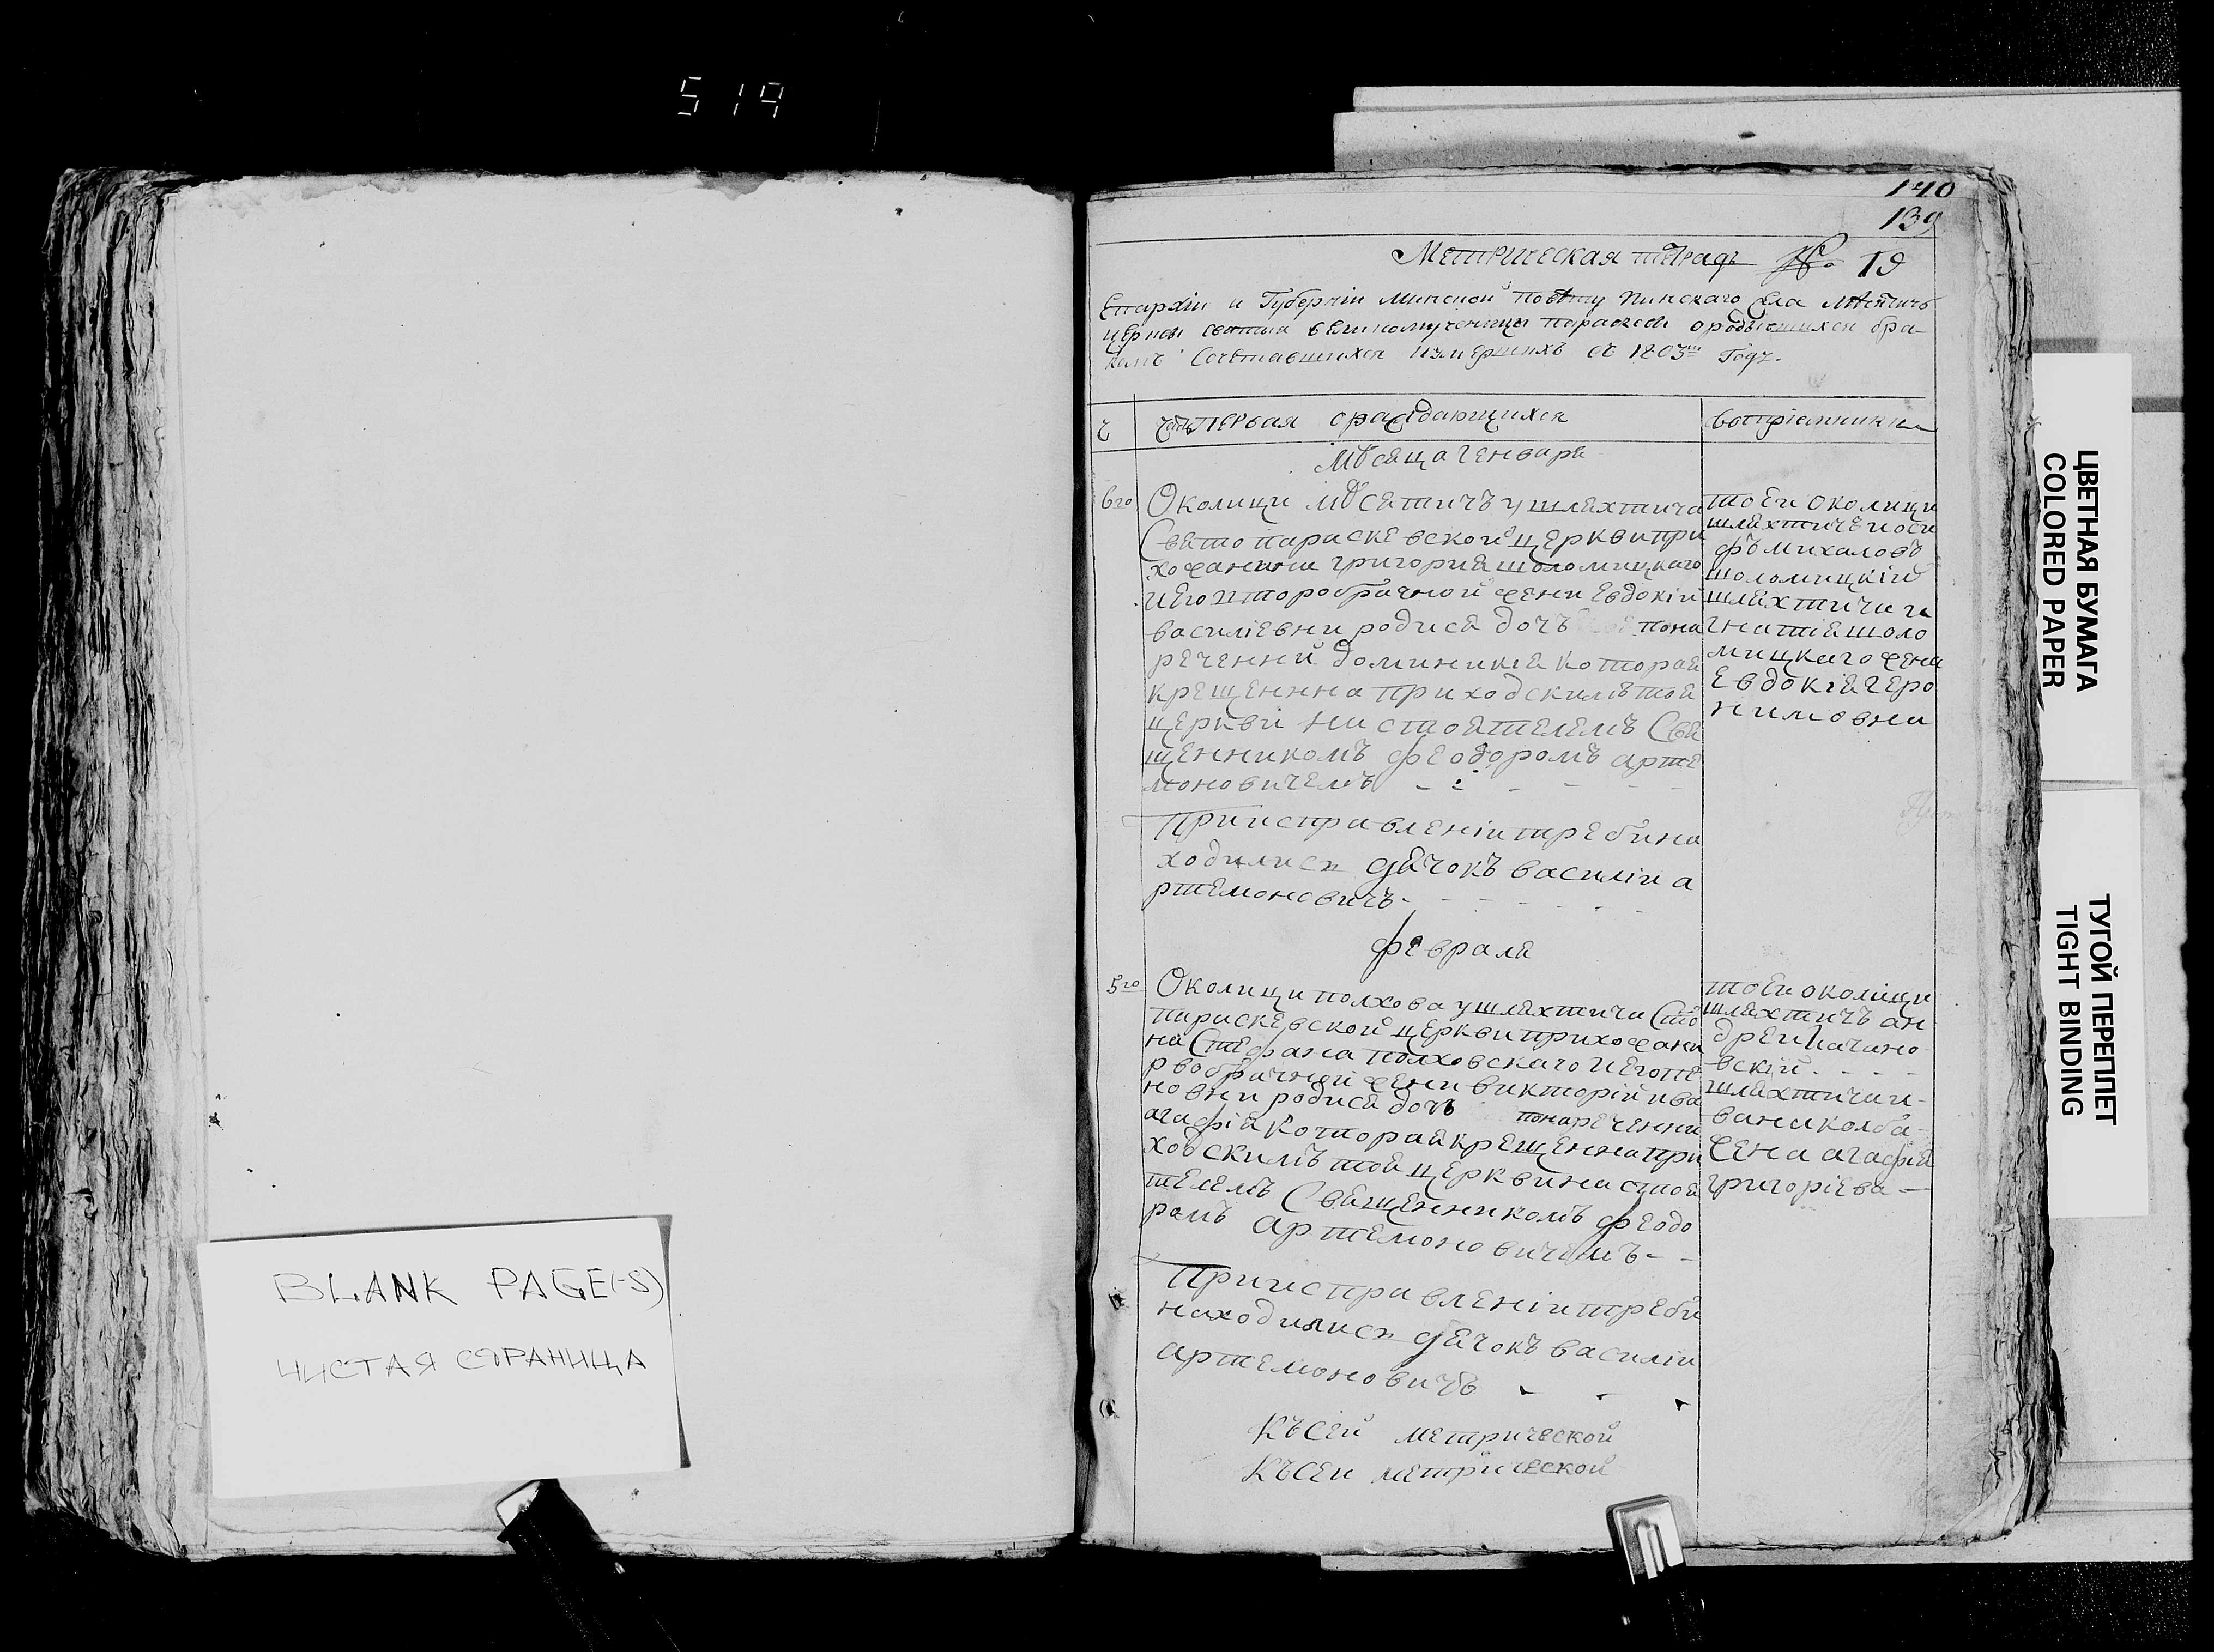 519
BLANK PAGE(-S)
ЧИСТАЯ СТРАНИЦА
140
139
Метрическая тетрадь № 19
Епархіи и Губерніи Минской повѣту Пинскаго села Мѣсятичъ
церкви святыя великомученицы параскеви ородывшихся бра-
комъ сочетавшихся измершихъ съ 1803 Году.
Ч часть первая ораждающихся
воспріемники
Мѣсяца генваря
6го Околици Мѣсятичъ у шляхтича
Святопараскевской церкви при
хожанина григорія шоломицкаго
и его второбрачной жени Евдокій
василіевни родися дочъ пона
реченній доминикія которая
крещеннна приходскимъ тоя
церкви настоятелемъ Свя
щенникомъ феодоромъ арте
моновичемъ
тоей околици
шляхтичъ иоси
фъ михаловъ
шоломицкій
шляхтича и
гнатія шоло
мицкаго жена
Евдокія геро
нимовна
При исправленіи требй на
ходился дячокъ василіи а
ртемоновичъ
февраля
5го Околици полхова у шляхтича Сто
параскевской церкви прихожани
на Стефана полховскаго и его пе
рвобрачной жени викторій ива
новни родися дочъ понареченни
агафія которая крещенна при
ходскимъ тоя церкви настоя
телемъ Священникомъ феодо
ромъ артемоновичемъ
тоеи околици
шляхтичъ ан
дреи качано
вскій
шляхтича и-
вана колба-
жена агафія
григоріева
При исправленіи требй
находился дячокъ василіи
артемоновичъ
Къ сей метрической
Къ сеи метрической
ЦВЕТНАЯ БУМАГА
COLORED PAPER
ТУГОЙ ПЕРЕПЛЕТ
TIGHT BINDING